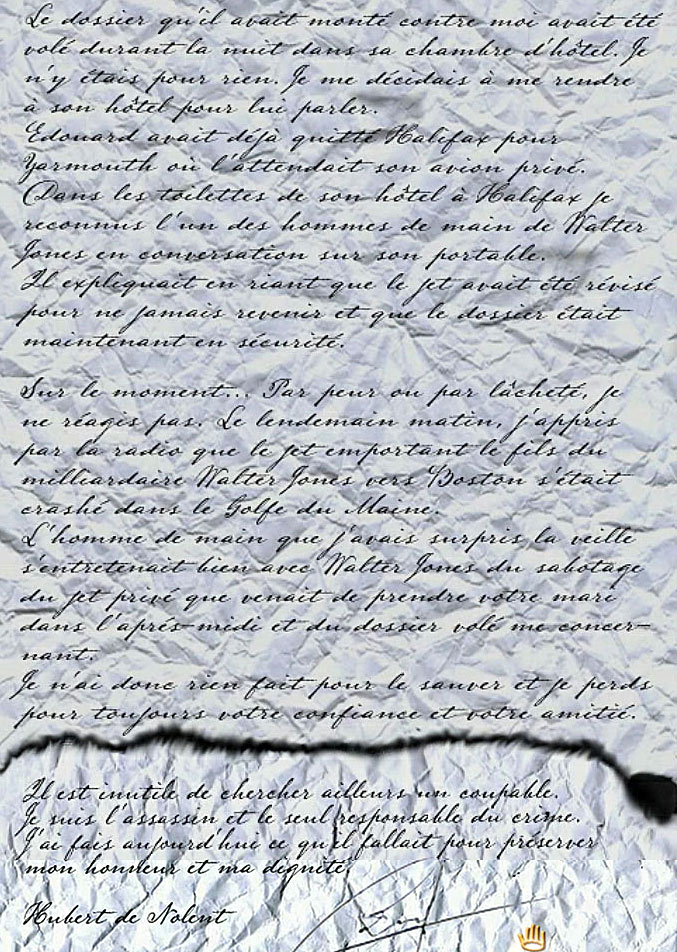 Le dossier qu'il avait monté contre moi avait été
volé durant la nuit dans sa chambre d'hôtel. Je
n'y étais pour rien. Je me décidais à me rendre
à son hôtel pour lui parler.
Edouard avait déjà quitté Halifax pour
Yarmouth où l'attendait son avion privé.
Dans les toilettes de son hôtel à Halifax je
reconnus l'un des hommes de main de Walter
Jones en conversation sur son portable.
Il expliquait en riant que le jet avait été révisé
pour ne jamais revenir et que le dossier était
maintenant en sécurité.
Sur le moment... Par peur ou par lâcheté, je
ne réagis pas. Le lendemain matin, j'appris
par la radio que le jet emportant le fils du
milliardaire Walter Jones vers Boston s'était
crashé dans le Golfe du Maine.
L'homme de main que j'avais surpris la veille
s'entretenait bien avec Walter Jones du sabotage
du jet privé que venait de prendre votre mari
dans l'après-midi et du dossier volé me concer-
nant.
Je n'ai donc rien fait pour le sauver et je perds
pour toujours votre confiance et votre amitié.
Il est inutile de chercher ailleurs un coupable.
Je suis l'assassin et le seul responsable du crime.
J'ai fais aujourd'hui ce qu'il fallait pour préserver
mon honneur et ma dignité.
Hubert de Nolent